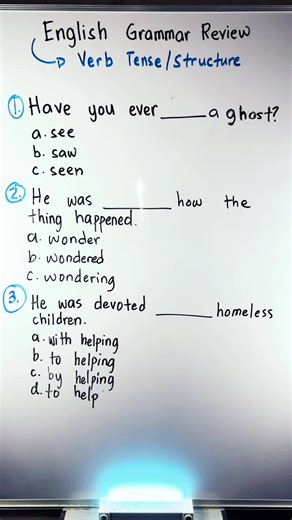 English Grammar Review
Verb Tense/Structure
1. Have you ever ____ a ghost?
a. see
b. saw
c. seen
2. He was ________ how the
thing happened.
a. wonder
b. wondered
c. wondering
3. He was devoted ______ homeless
children.
a. with helping
b. to helping
c. by helping
d. to help